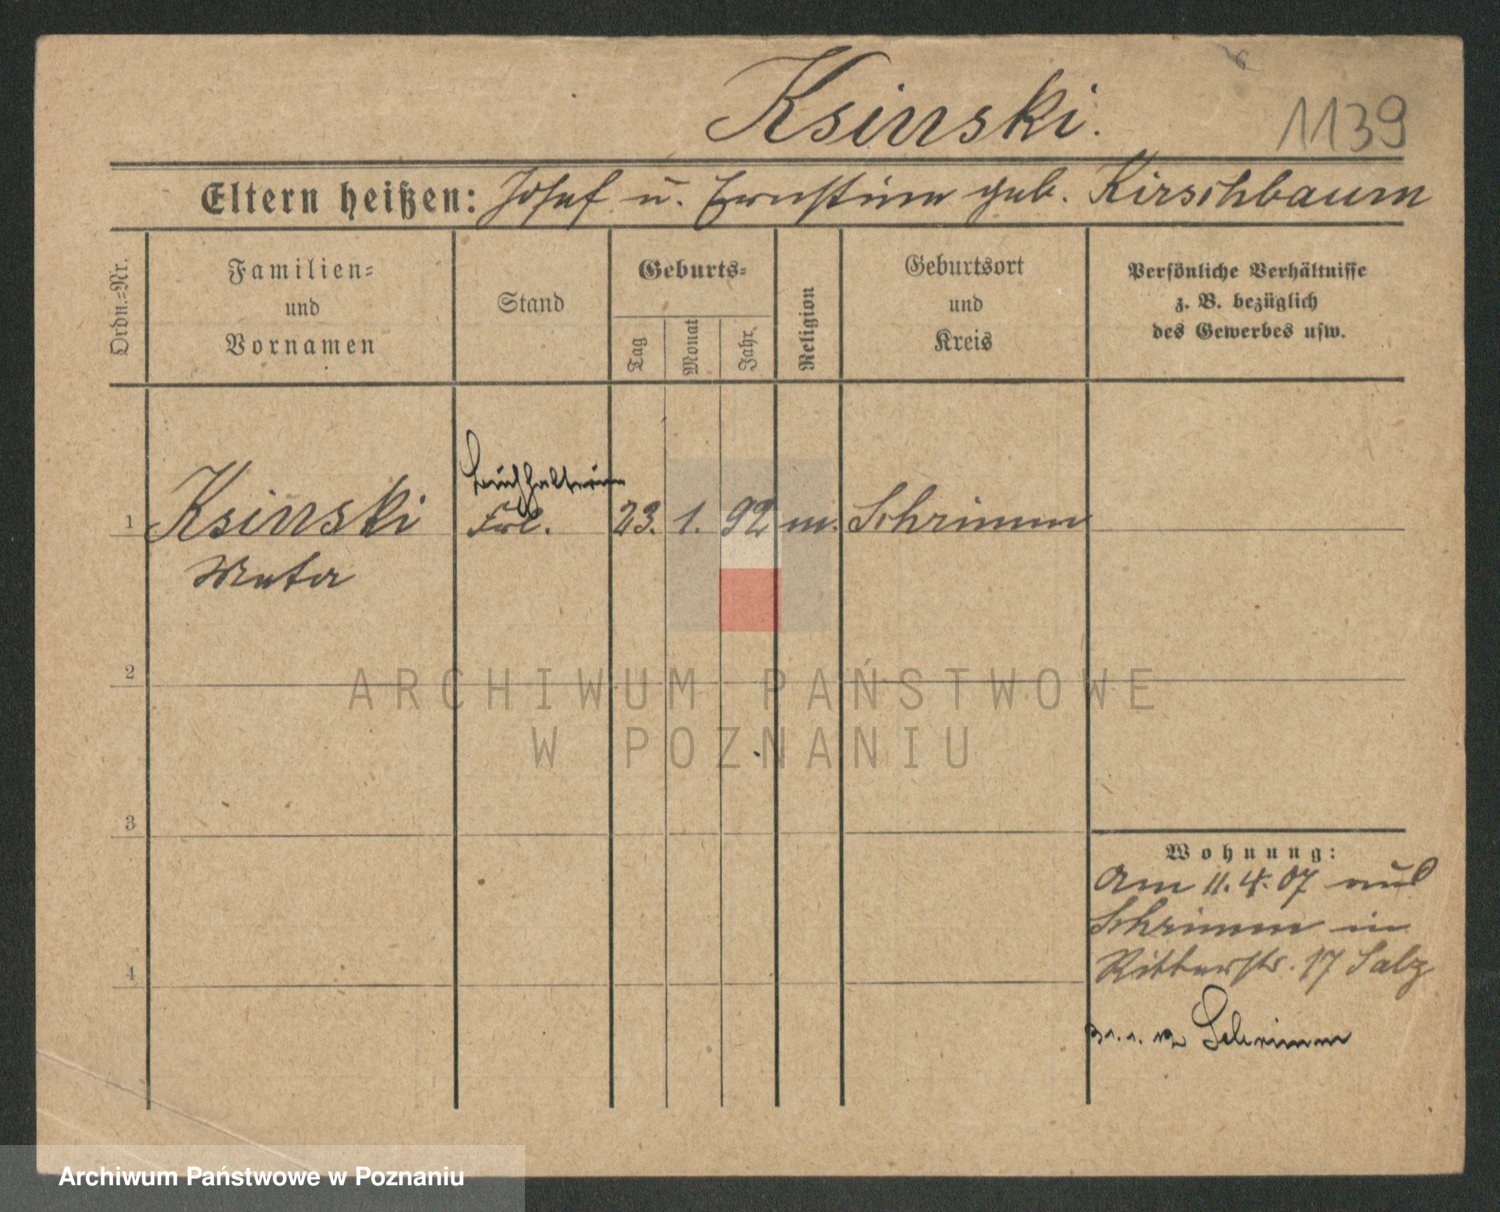 Ksinski.
1139
Eltern heißen: Josef u. Ernstine geb. Kirschbaum
Ordn.=Nr.
Familien=
und
Vornamen
Stand
Geburts=
Tag
Monat
Jahr
Religion
Geburtsort
und
Kreis
Persönliche Verhältnisse
z. B. bezüglich
des Gewerbes usw.
Buchhalterin
1 Ksinski Frl. 23. 1. 92 m. Schrimm
2
3
4
Wohnung:
Am 11.4.07 aus
Schrimm in
Ritterstr. 17 Salz
Schrimm
ARCHIWUM PAŃSTWOWE
W POZNANIU
Archiwum Państwowe w Poznaniu